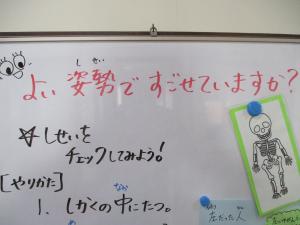 よい姿勢ですごせていますか?
しせい
☆しせいを
チェックしてみよう!
[やりかた]
1. しかくの中にたつ。
なか
左だった人